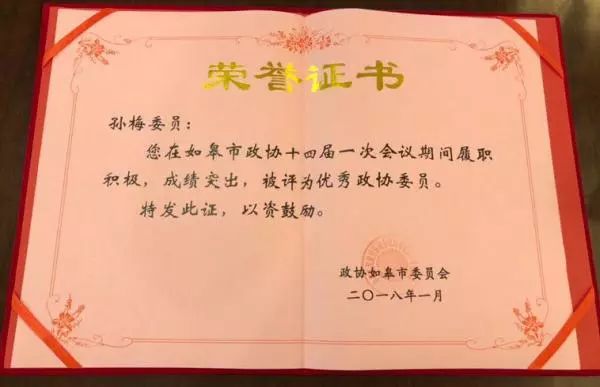 荣誉证书
孙梅委员：
您在如皋市政协十四届一次会议期间履职
积极，成绩突出，被评为优秀政协委员。
特发此证，以资鼓励。
政协如皋市委员会
二〇一八年一月